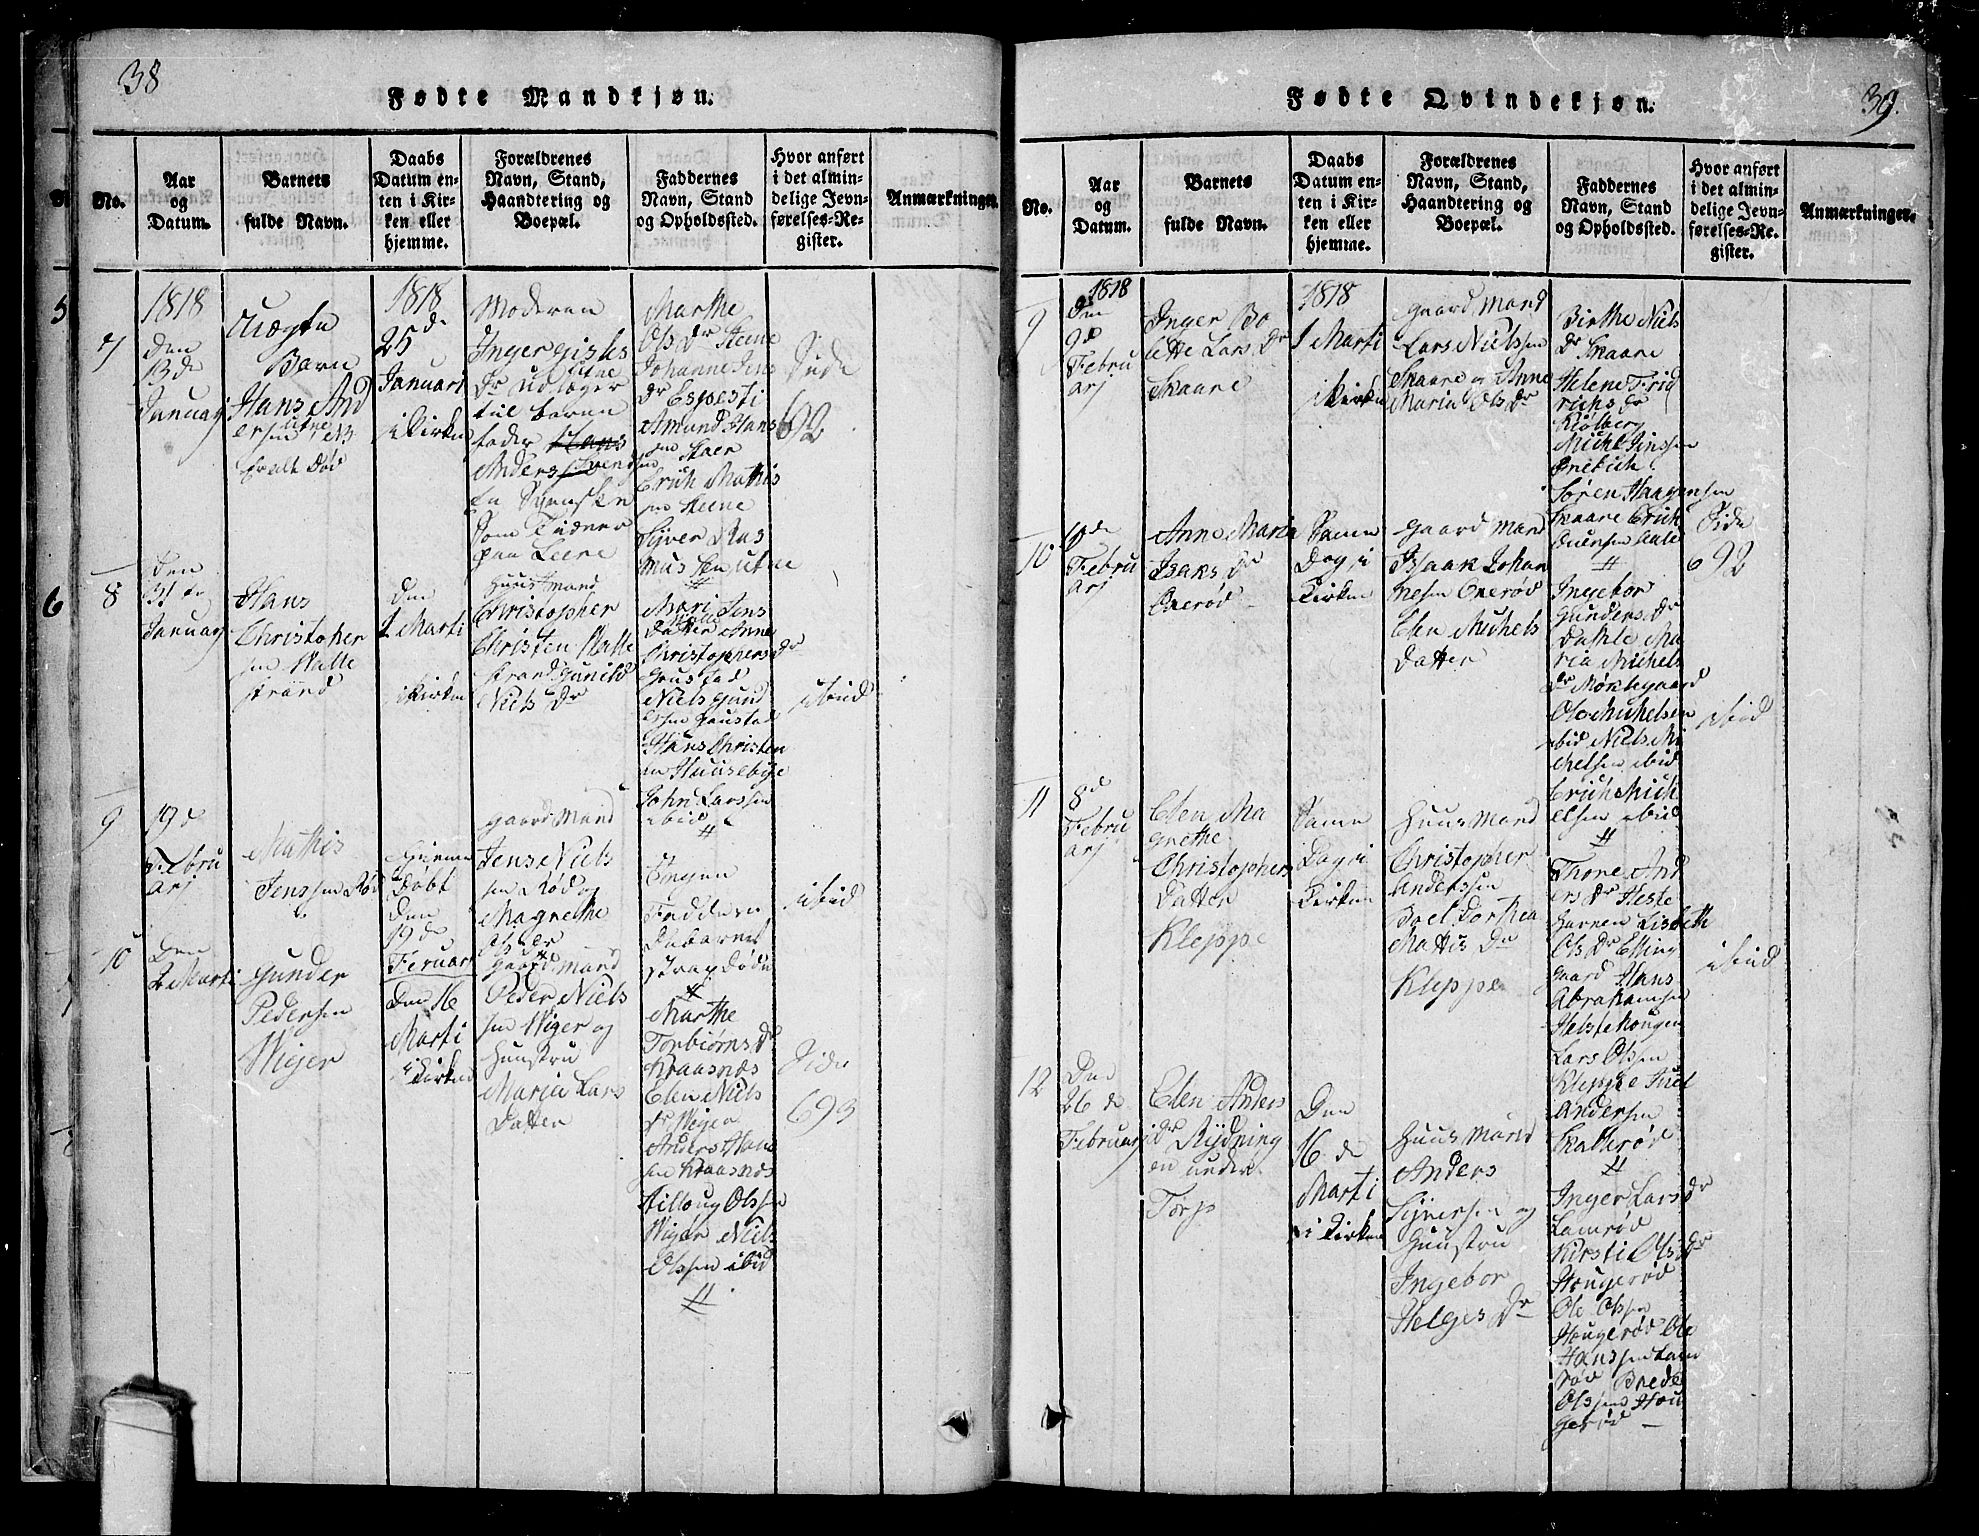 38
Fødte Mandkjøn.
No.
Aar
og
Datum.
Barnets
fulde Navn.
Daabs
Datum en-
ten i Kir-
ken eller
hjemme.
Forældrenes
Navn, Stand,
Haandtering og
Boepæl.
Faddernes
Navn, Stand
og Opholdssted.
Hvor anført
i det almin-
delige Jevn-
førelses-Re-
gister.
Anmærkninger.
7
1818
den
13de
Januarj
Uægte
Barn
Hans And
ersen Utne
1818
25de
Januari
i Kirken
Moderen
Inger Gisles
Dr Utne
Udlæger
til barne
fader Hans
Anders Svends
En Svenske
Som Tiener
paa Leere
Marthe
Ols Dr Steene
Johanne Jens
Dr Espesti
Amund Hans
sen Skaer
Erich Mathis
sen Steene
Syver Ras
mussen Utne
#
Side
692
8
Den
31 te
Januarj
Hans
Christopher
sen Walle
strand
den
1 Marti
i Kirken
Huusmand
Christopher
Christen Walle
strand Gunild
Niels Dr
Mari Jens
Datter Walle Anne
Christophers Dr
Grustad
Niels Gund
ersen Grustad
Hans Christen
sen Huusebye
John Larssen
ibid
#
ibid
9
19 d
Febru
arj
Mathis
Jenssen Rød
Hiemme
Døbt
den
19 de
Feruarj
gaard Mand
Jens Niels
sen Rød og
Magrethe
Ols Dr
Ingen
Faddere
da barnet
strax Døde
#
ibid
10
Den
2 Marti
Gunder
Pedersen
Wiger
Den 16
Marti
i Kirken
gaard Mand
Peder Niels
sen Wiger og
Huustru
Maria Lars
Datter
Marthe
Torbiørns Dr
Kraasnæs
Elen Niels
Dr Wiger
Anders Han
sen Kraasnæs
Tilloug Olssen
Wiger Niels
Olssen ibid
#
Side
693
39.
Fødte Qvindekjøn.
No.
Aar
og
Datum.
Barnets
fulde Navn.
Daabs
Datum en-
ten i Kir-
ken eller
hjemme.
Forældrenes
Navn, Stand,
Haandtering og
Boepæl.
Faddernes
Navn, Stand
og Opholdssted.
Hvor anført
i det almin-
delige Jevn-
førelses-Re-
gister.
Anmærkninger.
9
1818
Den
9d
Febru
arj
Inger Bo
lette Lars Dr
Skaare
1818
1 Marti
i Kirken
gaard Mand
Lars Nielssen
Skaare og Anne
Maria Ols Dr
Birthe Niels
Dr Skaare
Helene Frid
richs Dr
Kiølberg
Michl Jenssen
Søren Haagensen
Skaare Erich
#
Side
692
10
Febru
arj
Anne Maria
Isaks Dr
Onerød
Samme
Dag i
Kirken
gaard Mand
Isaak Johan
nesen Onerød
Elen Michels
Datter
Ingebor
Gunders Dr
Dahle Ma
ria Michels
Dr Møklegaard
Ole Michelsen
ibid Niels Mi
chelsen ibid
Erich Mich
elsen ibid
#
ibid
11
8 d
Febru
arj
Elen Ma
grethe
Christophers
Datter
Kleppe
Samme
Dag i
Kirken
Huus Mand
Christopher
Anderssen
Boel Dorthea
Mattis Dr
Kleppe
Thore And
ers Dr Heste
havnen Lisbeth
Ols Dr Elling
gaard Hans
Abrahamsen
Hestehougen
Lars Olssen
Kleppe Juel
Andersen
Skatterød
#
ibid
12
Den
26 de
Februarj
Elen Anders
Dr Rydning
en under
Torp
Den
16 de
Marti
i Kirken
Huus Mand
Anders
Syversen og
Huustru
Ingebor
Helges Dr
Inger Lars Dr
Lamrød
Kirsti Ols Dr
Hougerød
Ole Olssen
Hougerød Ole
Hanssen Lam
rød Brede
Olssen Hou
gerød